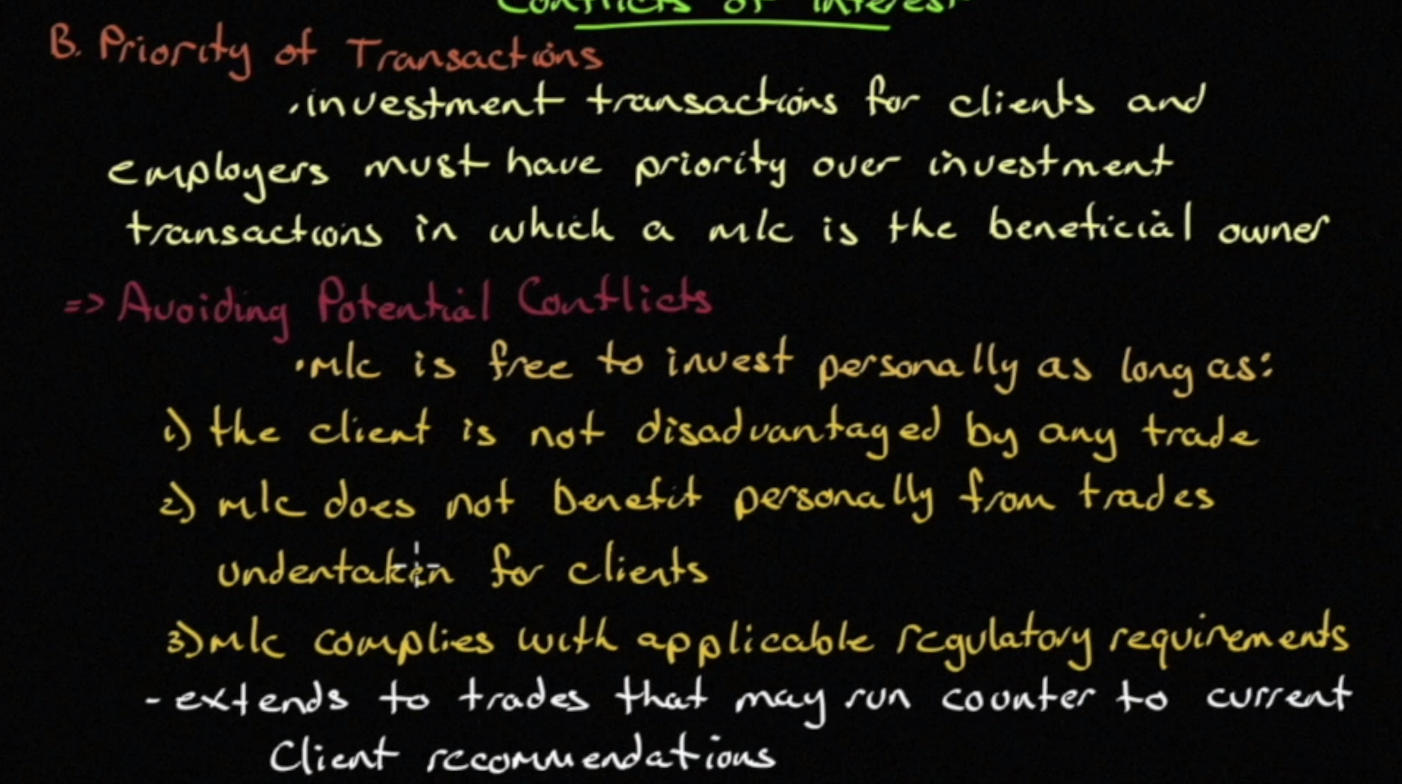 Conflicts of Interest
B. Priority of Transactions
. investment transactions for clients and
employers must have priority over investment
transactions in which a m/c is the beneficial owner
=> Avoiding Potential Conflicts
. m/c is free to invest personally as long as:
1) the client is not disadvantaged by any trade
2) m/c does not benefit personally from trades
undertaken for clients
3) m/c complies with applicable regulatory requirements
- extends to trades that may run counter to current
Client recommendations